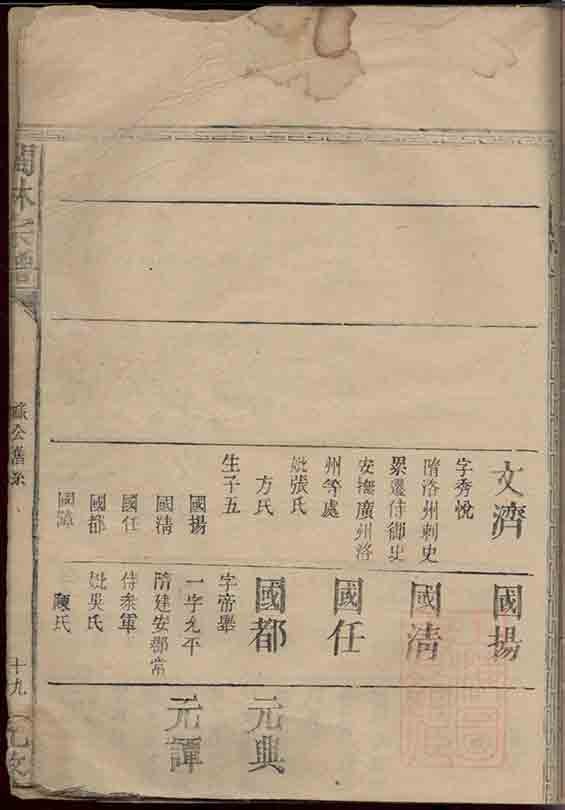 文濟
字秀悅
隋洛州刺史
累遷侍御史
安撫廣州洛
州等處
妣張氏
方氏
生子五
國揚
國淸
國任
國都
國諱
國揚
國淸
國任
國都
字帝舉
一字允平
隋建安郡常
侍叅軍
妣吳氏
陳氏
元典
元譚
林宗譜
公舊系
十九